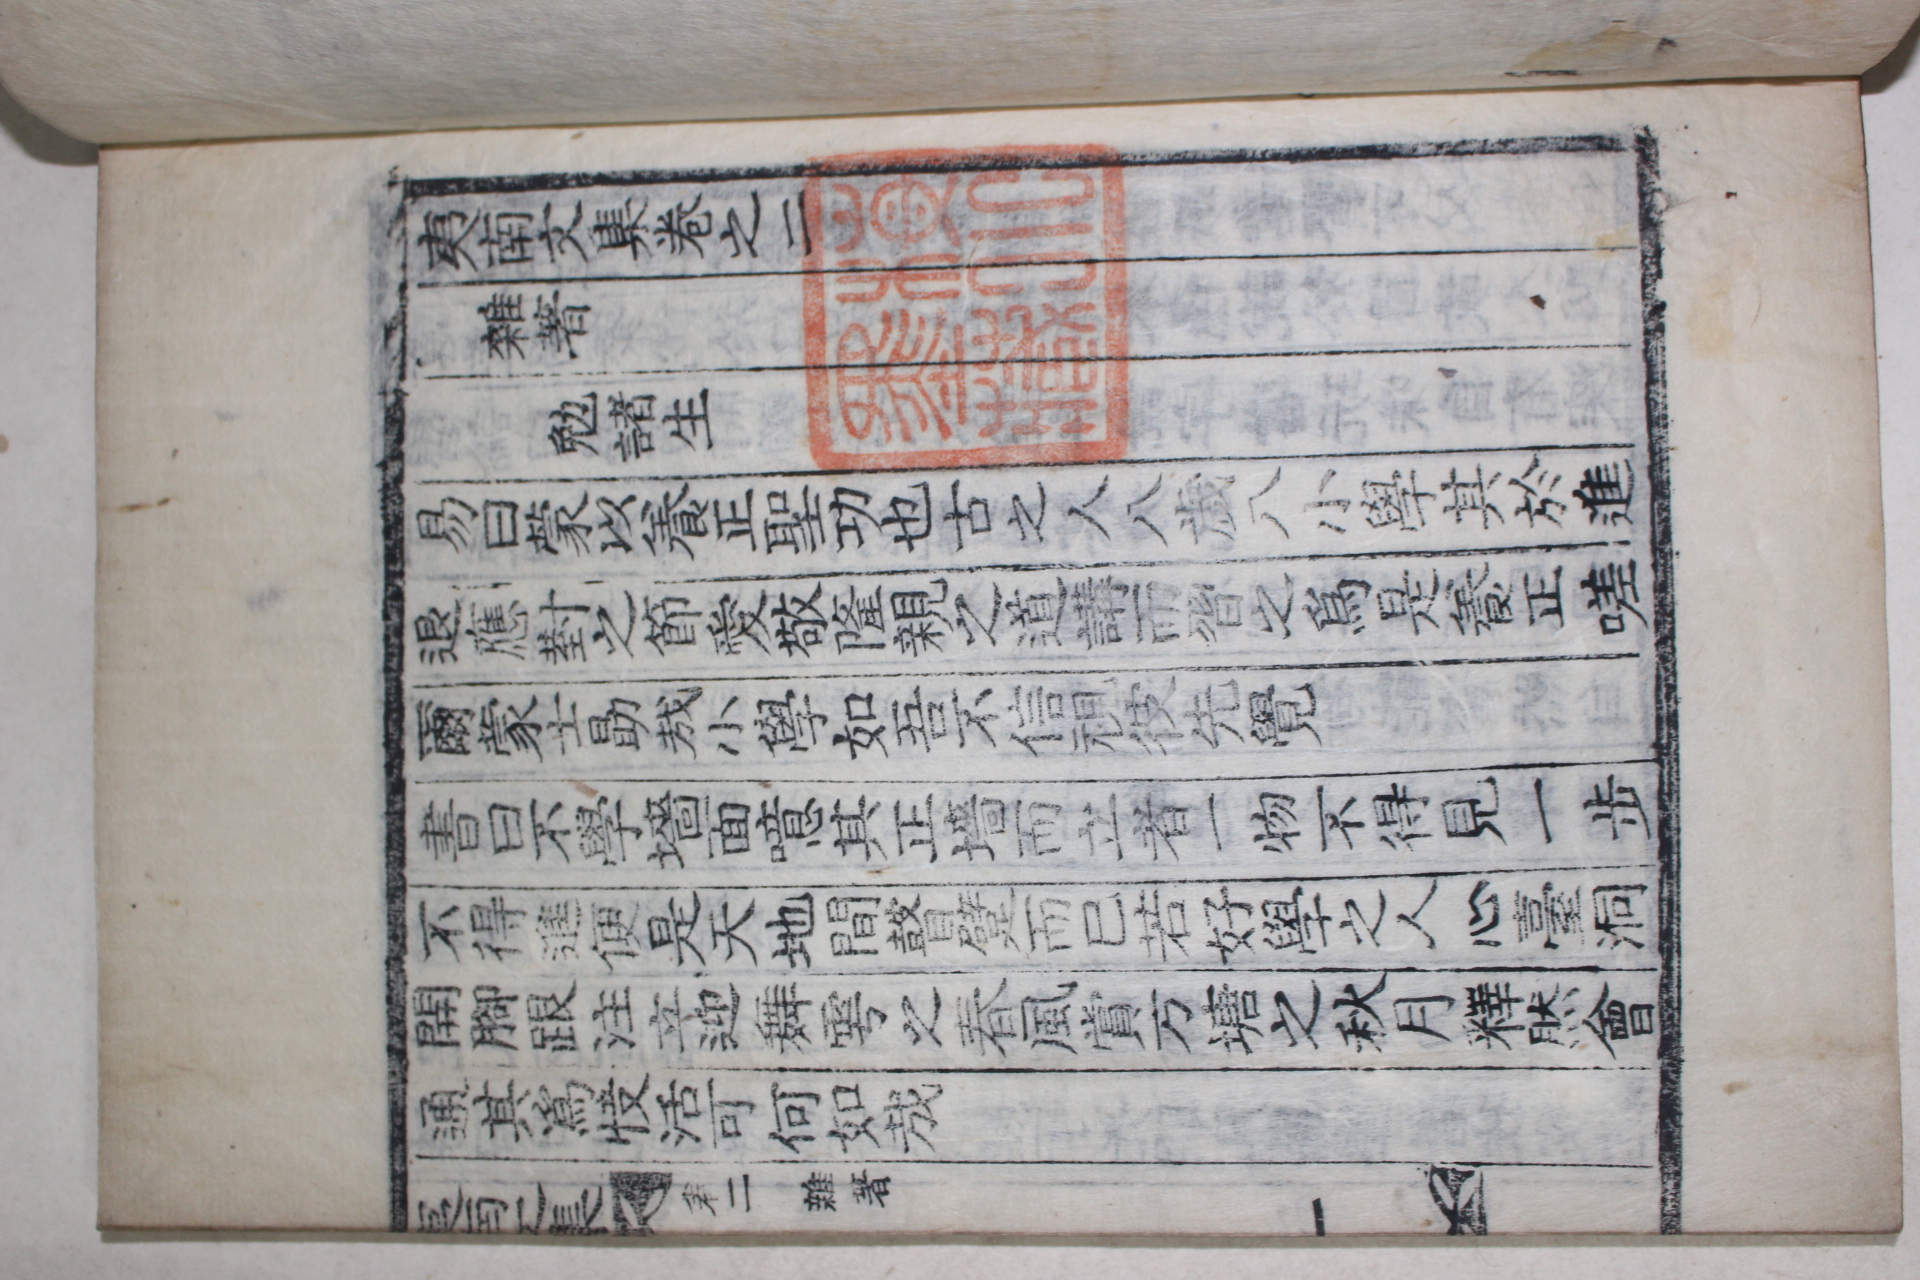 夷南文集卷之二
雜著
勉諸生
易曰蒙以養正聖功也古之人八歲入小學其於進
退應對之節愛敬隆親之道講而習之爲是養正嗟
爾蒙士勖哉小學如吾不信視彼先覺
書曰不學墻面噫其正墻而立者一物不得見一步
不得進便是天地間聾瞽而已若好學之人心臺洞
開脚跟注立逝舞雩之春風賞方塘之秋月釋然會
通其爲快活可何如哉
夷南文集 卷二 雜著 一